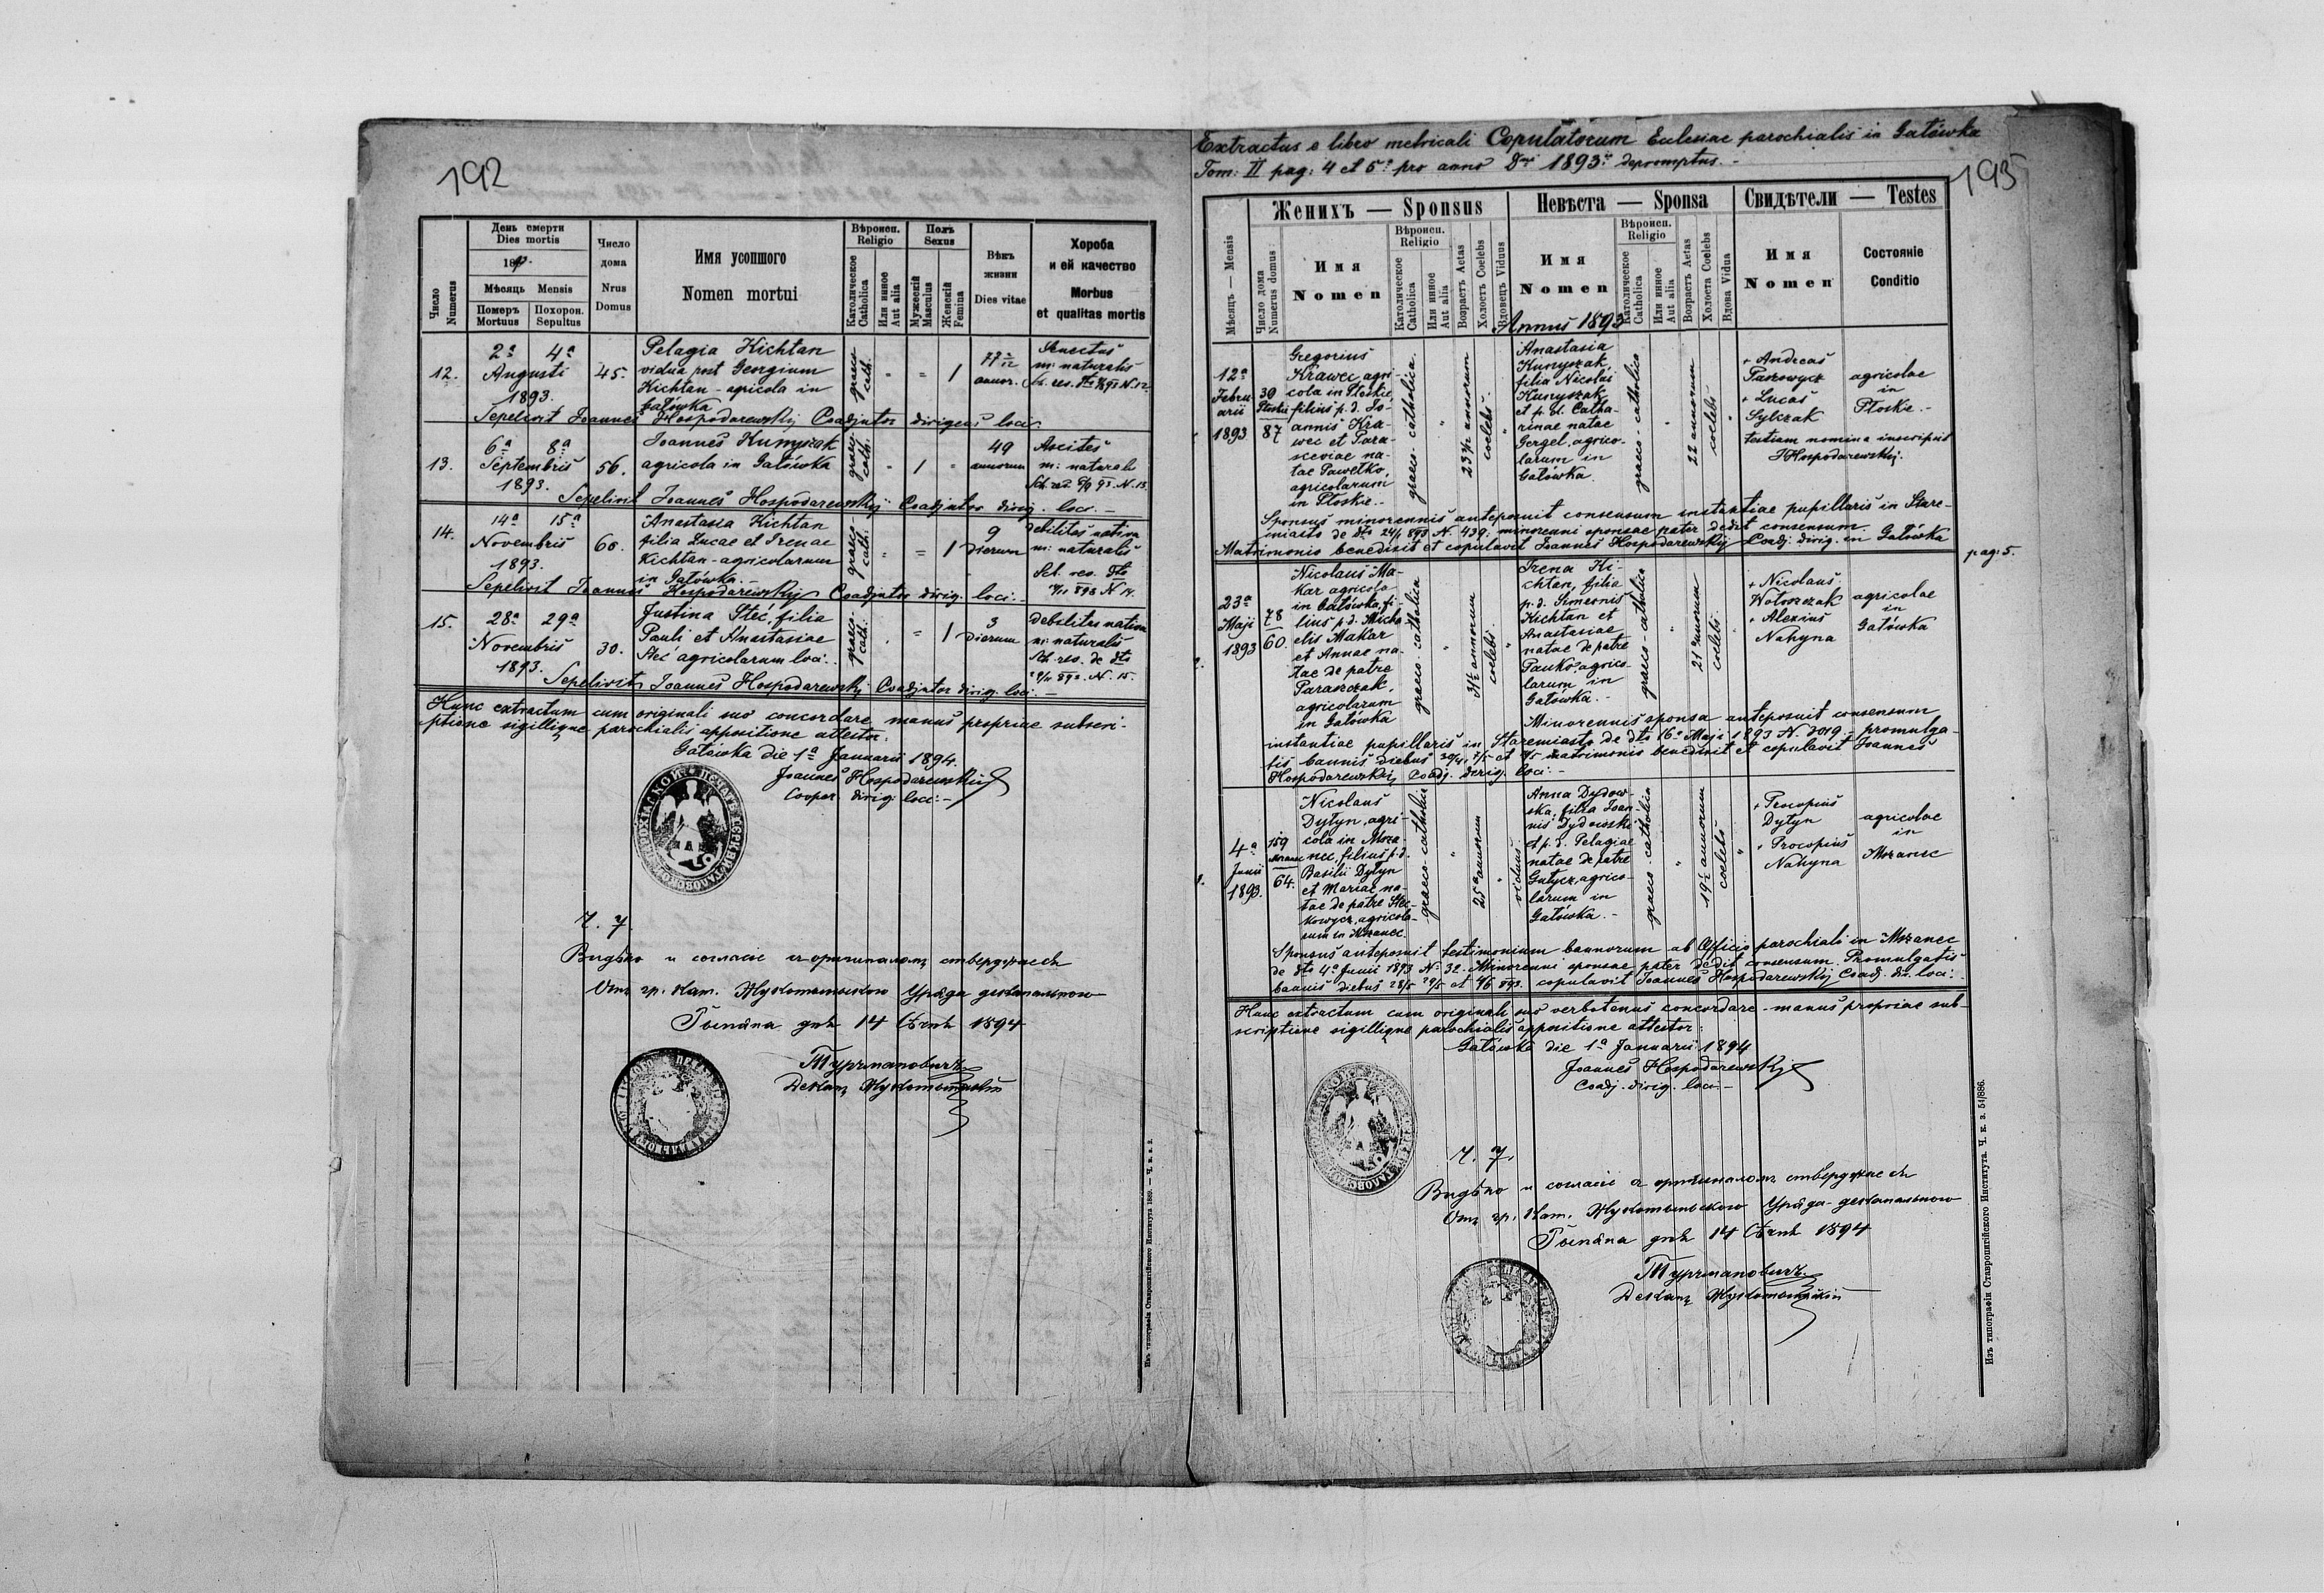 192
День смерти
Dies mortis
Мѣсяць Mensis
Померъ
Mortuus
Похорон.
Sepultus
Число
Numerus
Число
дома
Nrus
Domus
Имя усопшого
Nomen mortui
Вѣроисп.
Religio
Католическое
Catholica
Или иное
Aut alia
Полъ
Sexus
Мужескій
Masculus
Женскій
Femina
Вѣкъ
жизни
Dies vitae
Хороба
и ей качество
Morbus
et qualitas mortis
12.
2ª 4ª
Augusti
1893.
45.
Pelagia Kichtan
vidua post Georgium
Kichtan - agricola in
Gatówka
graeco
cath.
" = 1
annor.
Senectus
m: naturalis
Sepelivit Joannes Hospodarewskij Coadjutor dirigens loci.
13.
6ª 8ª
Septembris
1893.
56.
Joannes Kunyszak
agricola in Gatówka
graeco-
cath.
" 1 "
49
annorum
Ascites
m: naturalis
Sepelivit Joannes Hospodarewskij Coadjutor dirig. loci. -
14.
14ª 15ª
Novembris
1893.
68.
Anastasia Kichtan
filia Lucae et Irenae
Kichtan - agricolarum
in Gatówka. -
graeco-
cath.
" = 1
9
Dierum
debilitas nativa
m: naturalis
Sepelivit Joannes Hospodarewskij Coadjutor dirig. loci. -
15.
28ª 29ª
Novembris
1893.
30.
Justina Steć, filia
Pauli et Anastasiae
Steć agricolarum loci.
graeco-
cath.
" = 1
3
Dierum
debilitas nativa
m: naturalis
Sepelivit Joannes Hospodarewskij Coadjutor dirig. loci. -
Hunc extractum cum originali suo concordare manus propriae subscri-
ptione sigillique parochialis appositione attestor.
Gatówka die 1ª Januarii 1894.
Joannes Hospodarewskij
Cooper. dirig. loci. -
Ч. 7.
Видѣно и согласіе съ оригиналомъ стверджаесь
Отъ гр. кат. Жукотинского Уряда деканального
14 1894
Деканъ Жукотинскій
Изъ типографіи Ставропигійского Института 1889. — Ч. к. з. 2.
Extractus e libro metricali Copulatorum Ecclesiae parochialis in Gatówka
Tom: II pag: 4 et 5. pro anno Dni 1893. depromptus. -
193
Женихъ — Sponsus
Невѣста — Sponsa
Свидѣтели — Testes
Мѣсяць — Mensis
Число дома
Numerus domus
Имя
Nomen
Вѣроисп.
Religio
Католическое
Catholica
Или иное
Aut alia
Возрастъ Aetas
Холостъ Coelebs
Вдовецъ Viduus
Имя
Nomen
Вѣроисп.
Religio
Католическое
Catholica
Или иное
Aut alia
Возрастъ Aetas
Холоста Coelebs
Вдова Vidua
Имя
Nomen
Состояніе
Conditio
Annus 1893
12ª
Febru-
arii
1893
39
Płoskie
87
Gregorius
Krawec agri-
cola in Płoskie,
filius p. d. Jo-
annis Kra-
wec et Para-
sceviae na-
tae Pawełko,
agricolarum
in Płoskie. -
graeco-catholica.
23 ½ annorum
coelebs
Anastasia
Kunyszak,
filia Nicolai
Kunyszak
et p. d. Catha-
rinae natae
Gergel, agrico-
larum in
Gatówka.
graeco-catholica
22 annorum
coelebs
+ Andreas
Paszowycz
+ Lucas
Sylczak
agricolae
in
Płoskie. -
testium nomina inscripsit
JHospodarewskij.
Sponsus minorennis anteposuit consensum instantiae pupillaris in Stare-
miasto de dto 24/1 893 N. 439. minorenni sponsae pater dedit consensum.
Matrimonio benedixit et copulavit Joannes Hospodarewskij Coadj. dirig. in Gatówka
pag: 5.
23ª
Maji
1893
78
60.
Nicolaus Ma-
kar agricola
in Gatówka, fi-
lius p. d. Micha-
elis Makar
et Annae na-
tae de patre
Paraszczak,
agricolarum
in Gatówka
graeco-catholica
31 ½ annorum
coelebs.
Irena Ki-
chtan, filia
p. d. Simeonis
Kichtan et
Anastasiae
natae de patre
Pańko, agrico-
larum in
Gatówka. -
graeco-catholica
21 annorum
coelebs.
+ Nicolaus
Wołoszczak
+ Alexius
Nahyna
agricolae
in
Gatówka
Minorennis sponsa anteposuit consensum
instantiae pupillaris in Staremiasto de dto 16. Maji 1893 N. 2019. - promulga-
tis bannis diebus 30/4, 7/5 et matrimonio benedixit et copulavit Joannes
Hospodarewskij Coadj. dirig. loci. -
4ª
Junii
1893.
159
Mszanec
64.
Nicolaus
Dytyn, agri-
cola in Msza-
nec, filius p. d.
Basilii Dytyn
et Mariae na-
tae de patre
agricola-
rum in Mszanec.
graeco-catholica
25 annorum
viduus
Anna Dydow-
ska, filia Joan-
nis Dydowski
et p. d. Pelagiae
natae de patre
agrico-
larum in
Gatówka. -
graeco-catholica
19 ½ annorum
coelebs
+ Procopius
Dytyn
+ Procopius
Nahyna
agricolae
in
Mszanec
Sponsus anteposuit testimonium bannorum ab Officio parochiali in Mszanec
de dto 4ª Junii 1893 N. 32. Minorenni sponsae pater dedit consensum. Promulgatis
bannis diebus 28/5 29/5 et 4/6 893. copulavit Joannes Hospodarewskij Coadj. dir. loci.
Hunc extractum cum originali suo verbotenus concordare - manus propriae sub-
scriptione sigillique parochialis appositione attestor:
Gatówka die 1ª Januarii 1894
Joannes Hospodarewskij
Coadj. dirig. loci. -
Ч. 7.
Видѣно и согласіе съ оригиналомъ стверджаесь
Отъ гр. кат. Жукотинского Уряда деканального
14 1894
Деканъ Жукотинскій
Изъ типографіи Ставропигійского Института. Ч. к. з. 51/886.